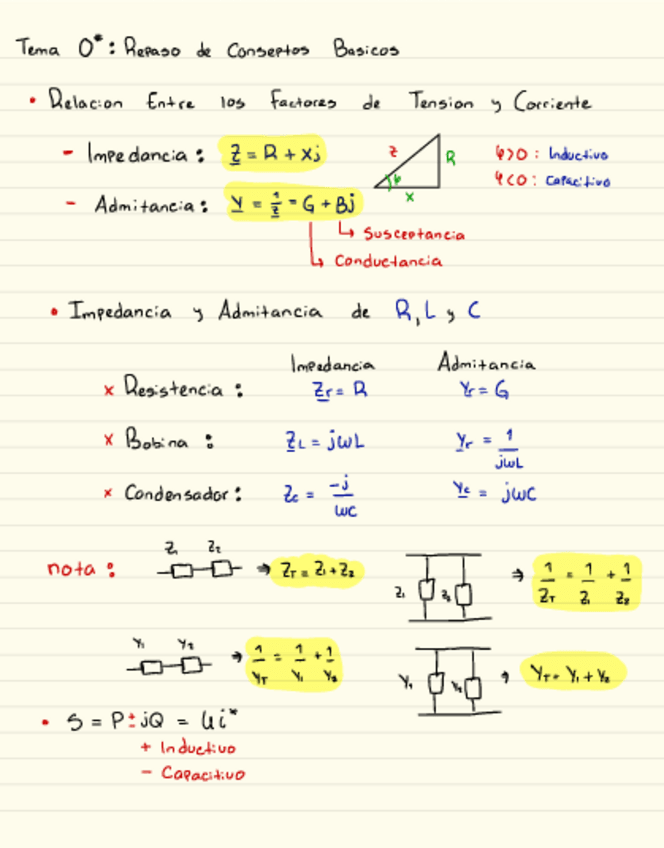 Tema 0*: Repaso de Conseptos Basicos
• Relacion Entre los Factores de Tension y Corriente
- Impedancia: Z = R + Xj
Z R φ X
φ>0: Inductivo
φ<0: Capacitivo
- Admitancia: Y = 1/Z = G + Bj
↳ Susceptancia
↳ Conductancia
• Impedancia y Admitancia de R, L y C
Impedancia Admitancia
x Resistencia: Zr = R Yr = G
x Bobina: ZL = jωL Yr = 1/jωL
x Condensador: Zc = -j/ωC Yc = jωC
nota: Z1 Z2 → ZT = Z1 + Z2
Z1 Z2 → 1/ZT = 1/Z1 + 1/Z2
Y1 Y2 → 1/YT = 1/Y1 + 1/Y2
Y1 Y2 → YT = Y1 + Y2
• S = P ± jQ = Ui*
+ Inductivo
- Capacitivo